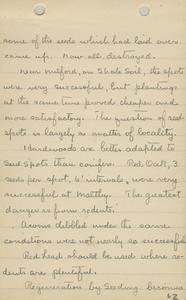 some of the seeds which had laid over
came up. Now all destroyed.
Near Milford, on Shale Soil, the spots
were very successful, but plantings
at the same time proved cheaper and
more satisfactory. The question of seed
spots is largely a matter of locality.
Hardwoods are better adapted to
Seed Spots than conifers. Red Oak, 3
seeds per spot, 6' intervals, were very
successful at Maltby. The greatest
danger is from rodents.
Acorns dibbled under the same
conditions were not nearly so successful
Red lead should be used where ro-
dents are plentiful.
Regeneration by Seeding becomes